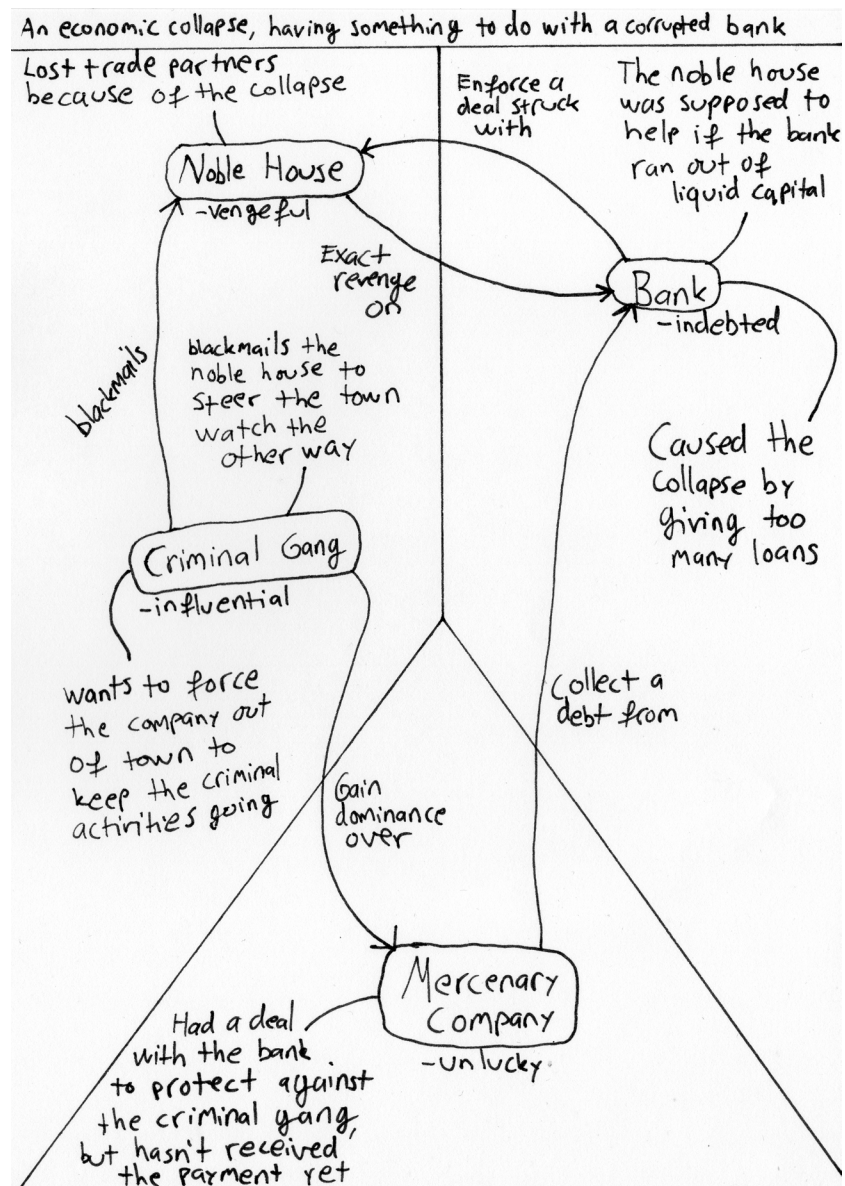 An economic collapse, having something to do with a corrupted bank
Lost trade partners
because of the collapse
Noble House
-vengeful
Enforce a
deal struck
with
The noble house
was supposed to
help if the bank
ran out of
liquid capital
Exact
revenge
on
Bank
-indebted
blackmails
blackmails the
noble house to
steer the town
watch the
other way
Caused the
collapse by
giving too
many loans
Criminal Gang
-influential
wants to force
the company out
of town to
keep the criminal
activities going
Collect a
debt from
Gain
dominance
over
Mercenary
Company
-unlucky
Had a deal
with the bank
to protect against
the criminal gang,
but hasn't received
the payment yet